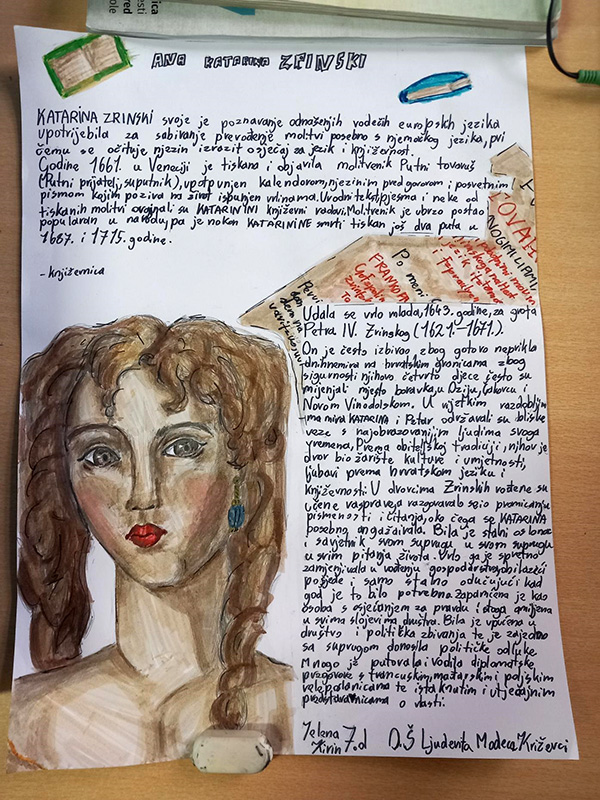 ANA KATARINA ZRINSKI
KATARINA ZRINSKI svoje je poznavanje odnaženih vodećih europskih jezika
upotrijebila za sabiranje prevođenje molitvi posebno s njemačkog jezika, pri
čemu se očituje njezin izrazit osjećaj za jezik i književnost.
Godine 1661. u Veneciji je tiskana i objavila molitvenik Putni tovaruš
(Putni prijatelj, suputnik), upotpunjen kalendarom, njezinim predgovorom i posvetnim
pismom kojim poziva na život ispunjen vrlinama. Uvodni tekst, pjesma i neke od
tiskanih molitvi KATARININI književni radovi. Molitvenik je ubrzo postao
popularan u narodu, pa je nakon KATARININE smrti tiskan još dva puta u
1687. i 1715. godine.
- književnica
TOVAR
MNOGIMI LIPIMI,
Po meni
FRANKOPA
Udala se vrlo mlada, 1643. godine, za grofa
Petra IV. Zrinskog (1621.-1671.).
On je često izbivao zbog gotovo neprekida
dnih nemira na hrvatskim granicama zbog
sigurnosti njihovo četvrto djece često su
mijenjali mjesto boravka, u Ozlju, Čakovcu i
Novom Vinodolskom. U rijetkim razdobljim
ma mira KATARINA i Petar održavali su bliske
veze s najobrazovanijim ljudima svoga
vremena. Prema obiteljskoj tradiciji, njihov je
dvor bio žarište kulture i umjetnosti,
ljubavi prema hrvatskom jeziku i
književnosti. U dvorcima Zrinskih vođene su
učene rasprave, a razgovaralo se i o promicanju
pismenosti i čitanja, oko čega se KATARINA
posebno angažirala. Bila je stalni oslonac
i savjetnik svom suprugu u svom suprugu
u svim pitanja života. Vrlo ga je spretno
zamjenjivala u vođenju gospodarstva, obilazeći
posjede i samo stalno odlučujući kad
god je to bilo potrebno. Zapamćena je kao
osoba s osjećanjem za pravdu i stoga omiljena
u svima slojevima društva. Bila je upućena u
društvo i politička zbivanja te je zajedno
sa suprugom donosila političke odluke
Mnogo je putovala i vodila diplomatske
pregovore s francuskim, mađarskim i poljskim
veleposlanicama te istaknutim i utjecajnim
predstavnicama o vlasti.
Jelena
Kirin 7.d OŠ Ljudevita Modeca Križevci